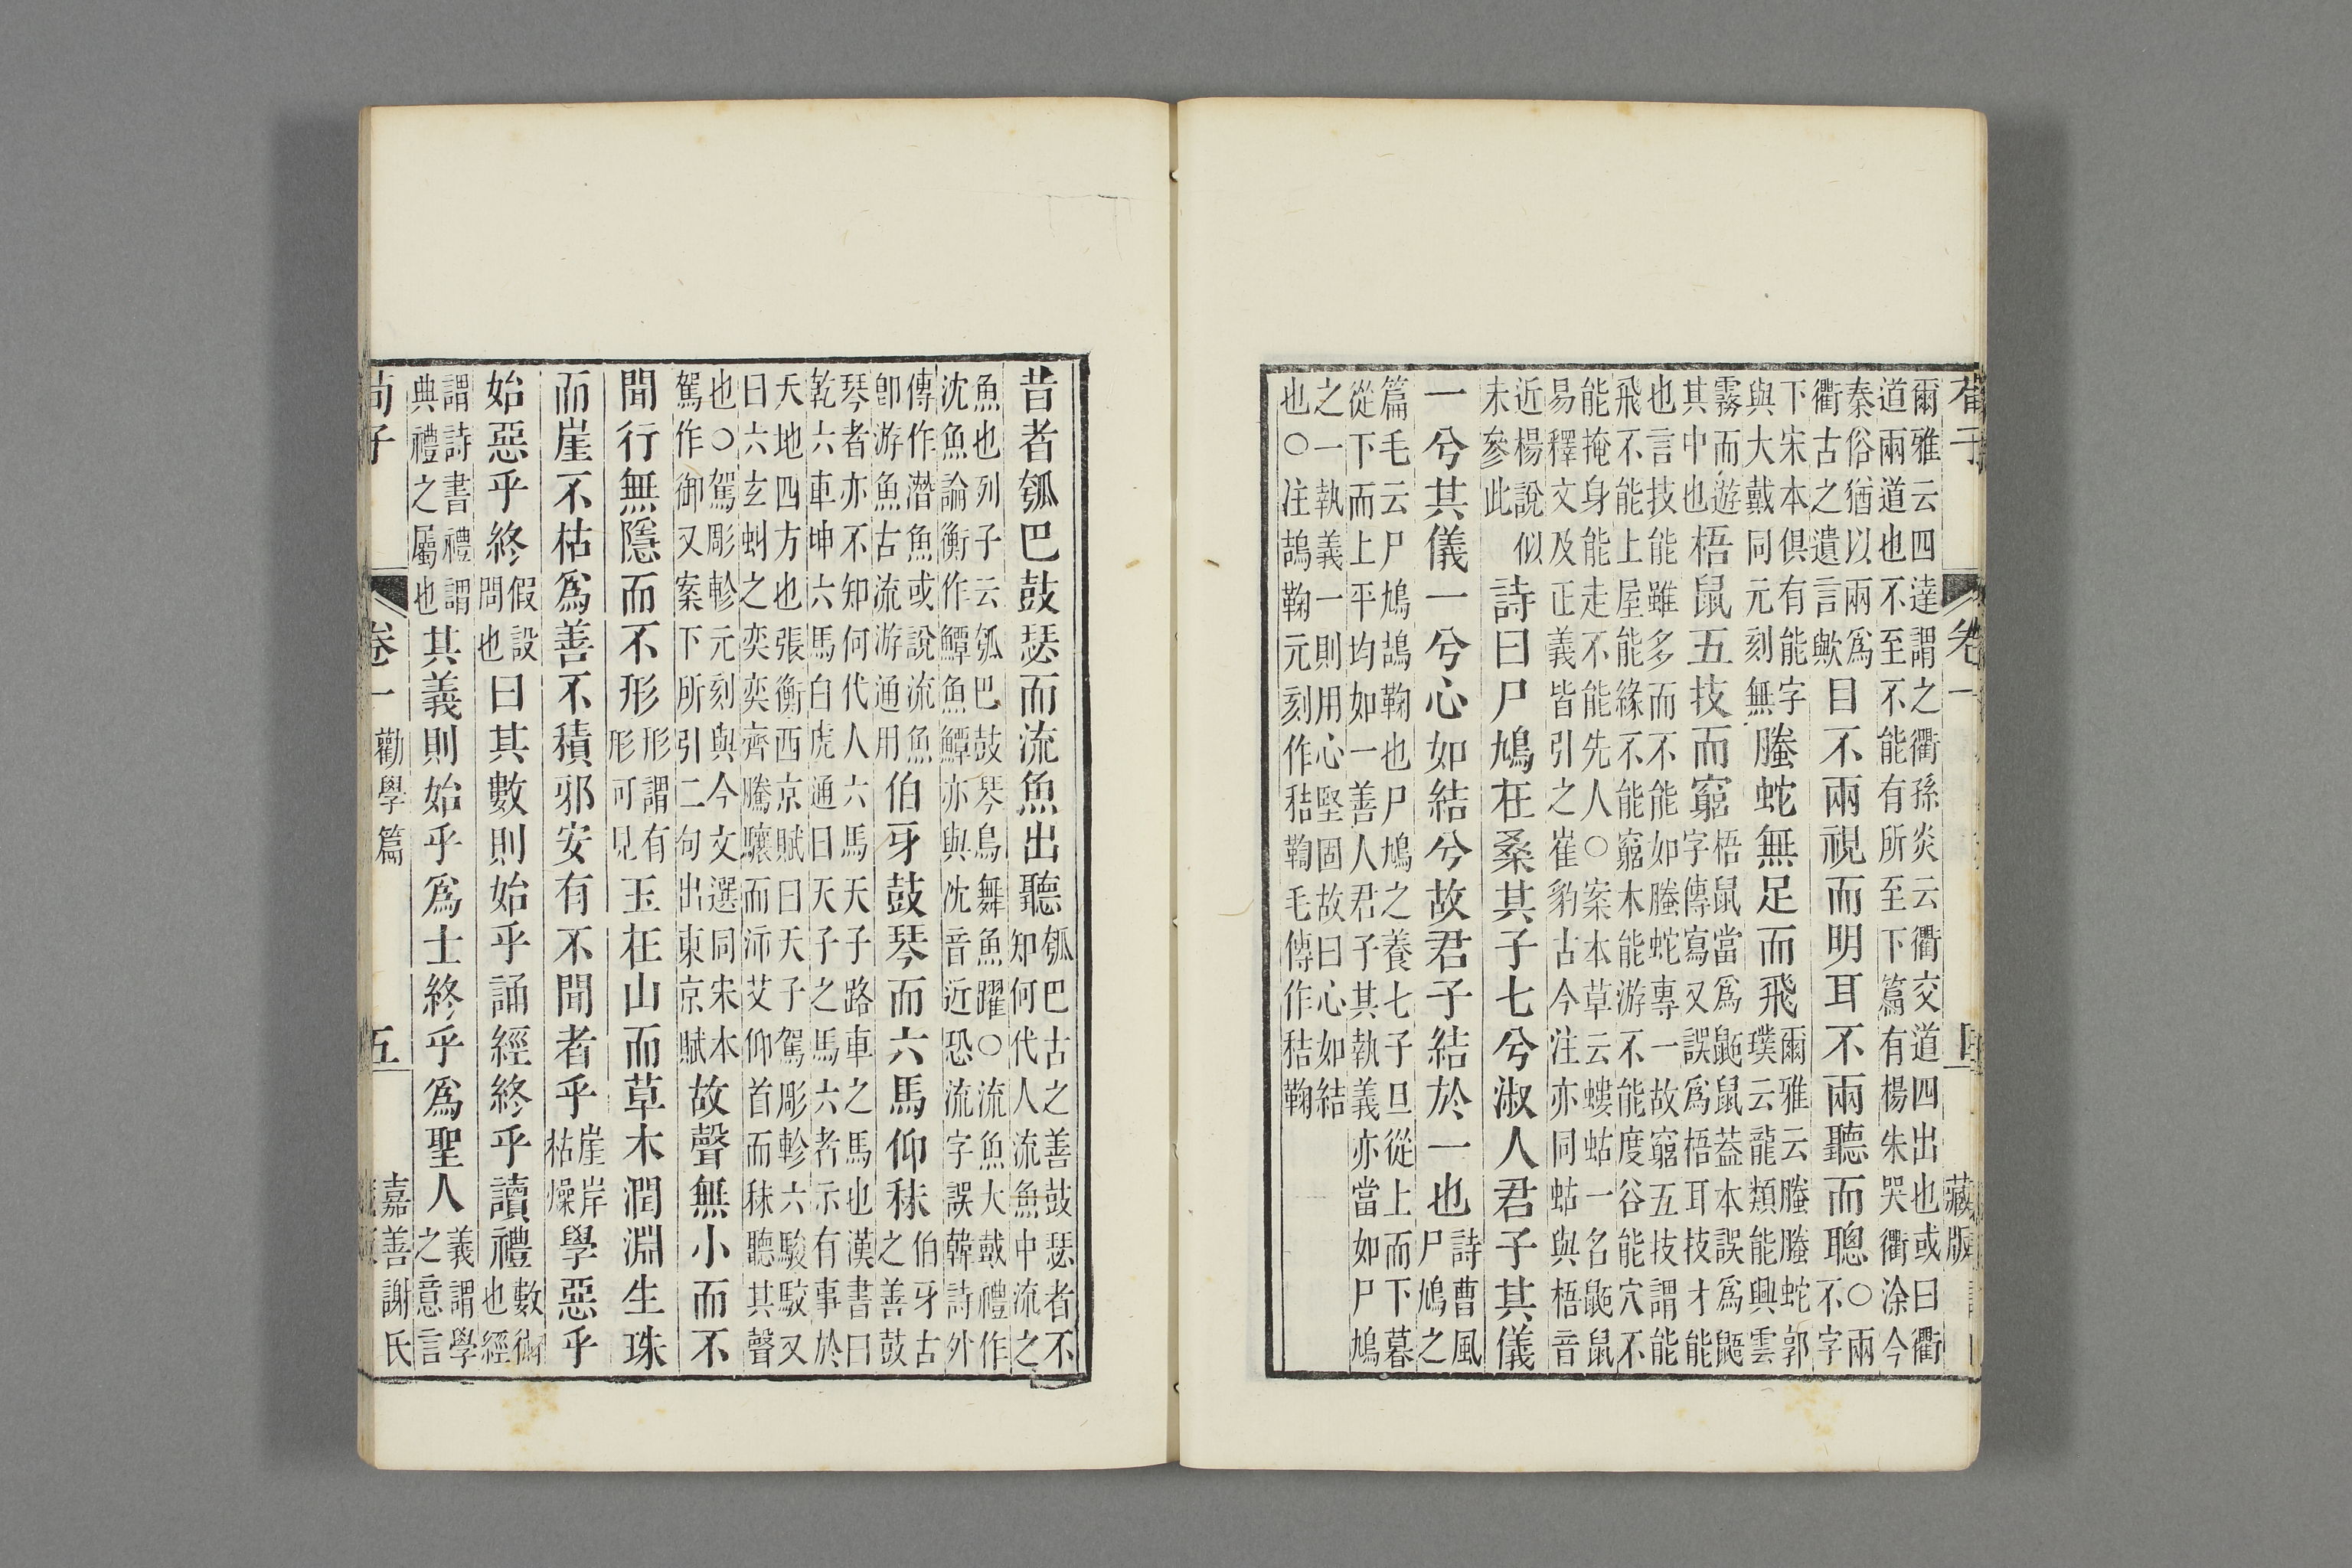 荀子 卷一 藏版
爾雅云四達謂之衢孫炎云衢交道四出也或曰衢道兩道也不至不能有所至下篇有楊朱哭衢涂今
秦俗猶以兩爲衢古之遺言歟目不兩視而明耳不兩聽而聰○兩不字
下宋本俱有能字與大戴同元刻無螣蛇無足而飛爾雅云螣螣蛇郭璞云龍類能興雲
霧而遊其中也梧鼠五技而窮梧鼠當爲鼫鼠葢本誤爲鼯字傳寫又誤爲梧耳技才能
也言技能雖多而不能如螣蛇專一故窮五技謂能飛不能上屋能緣不能窮木能游不能度谷能穴不
能掩身能走不能先人○案本草云螻蛄一名鼫鼠易釋文及正義皆引之崔豹古今注亦同蛄與梧音
近楊說似未參此詩曰尸鳩在桑其子七兮淑人君子其儀
一兮其儀一兮心如結兮故君子結於一也詩曹風尸鳩之
篇毛云尸鳩鴶鞠也尸鳩之養七子旦從上而下暮從下而上平均如一善人君子其執義亦當如尸鳩
之一執義一則用心堅固故曰心如結也○注鴶鞠元刻作秸鞫毛傳作秸鞠
昔者瓠巴鼓瑟而流魚出聽瓠巴古之善鼓瑟者不知何代人流魚中流之
魚也列子云瓠巴鼓琴鳥舞魚躍○流魚大戴禮作沈魚論衡作鱏魚鱏亦與沈音近恐流字誤韓詩外
傳作潛魚或說流魚卽游魚古流游通用伯牙鼓琴而六馬仰秣伯牙古之善鼓
琴者亦不知何代人六馬天子路車之馬也漢書曰乾六車坤六馬白虎通曰天子之馬六者示有事於
天地四方也張衡西京賦曰天子駕彫軫六駿駮又曰六玄虯之奕奕齊騰驤而沛艾仰首而秣聽其聲
也○駕彫軫元刻與今文選同宋本駕作御又案下所引二句出東京賦故聲無小而不
聞行無隱而不形形謂有形可見玉在山而草木潤淵生珠
而崖不枯爲善不積邪安有不聞者乎崖岸枯燥學惡乎
始惡乎終假設問也曰其數則始乎誦經終乎讀禮數術也經
謂詩書禮謂典禮之屬也其義則始乎爲士終乎爲聖人義謂學之意言
荀子 卷一 勸學篇 五 嘉善謝氏